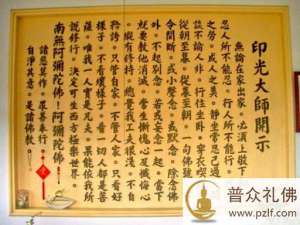 印光大師開示
無論在家出家。必須上敬下和。
忍人所不能忍。行人所不能行。代人
之勞。成人之美。靜坐常思己過。閒
談不論人非。行住坐臥。穿衣吃飯。
從朝至暮。從暮至朝。一句佛號。不
令間斷。或小聲念。或默念。除念佛
外。不起別念。若或妄念一起。當下
就要教他消滅。常生慚愧心及懺悔心
。縱有修持。總覺我工夫很淺。不自
矜誇。只管自家。不管人家。只看好
樣子。不看壞樣子。看一切人都是菩
薩。唯我一人實是凡夫。果能依我所
說修行。決定可生西方極樂世界。
南無阿彌陀佛！阿彌陀佛！
諸惡莫作。眾善奉行。
自淨其意。是諸佛教。
普众礼佛
www.pzlf.com